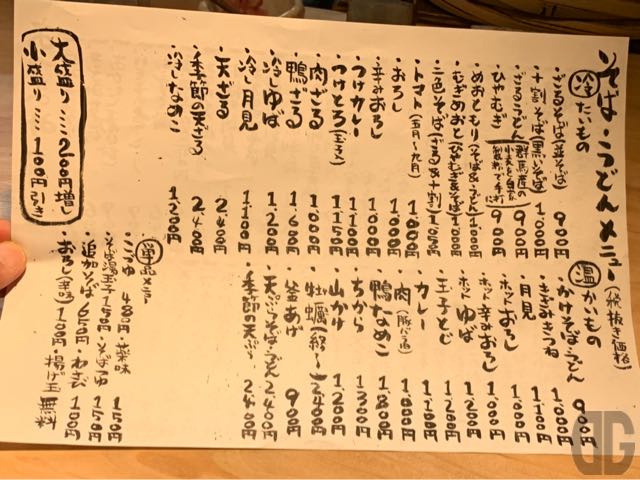 そば・うどんメニュー(税抜き価格)
冷たいもの
・ざるそば(並そば) 900円
・十割そば(黒いそば) 1000円
・ざるうどん 900円
・ひやむぎ 900円
群馬産の小麦を自家製粉で手打
・めおともり(そば&うどん) 1000円
・むぎめおと(ひやむぎ&そば) 1000円
・二色そば(ざる&十割)
・トマト(五月〜九月) 1000円
・おろし 1000円
・辛みおろし 1000円
・つけカレー 1100円
・つけとろ(玉子入) 1150円
・肉ざる 1000円
・鴨ざる 1600円
・冷しゆば 1200円
・冷し月見 1100円
・天ざる 2400円
・季節の天ざる 2400円
・冷しなめこ 1200円
大盛り…200円増し
小盛り…100円引き
温かいもの
・かけそば・うどん 900円
・きざみきつね 1000円
・月見 1100円
・ホットおろし 1000円
・ホット辛みおろし 1100円
・ホットゆば 1200円
・玉子とじ 1200円
・カレー 1100円
・肉(豚バラ) 1000円
・鴨なめこ 1800円
・ちから 1300円
・山かけ 1200円
・牡蠣 2400円
・釜あげ 900円
・天ぷらそば・うどん 2400円
・季節の天ぷら 2400円
単品メニュー
・薬味 150円
・そば湯玉子 150円・そばつゆ 150円
・追加そば 650円・わさび 100円
・おろし(辛味) 100円 揚げ玉 無料
DG